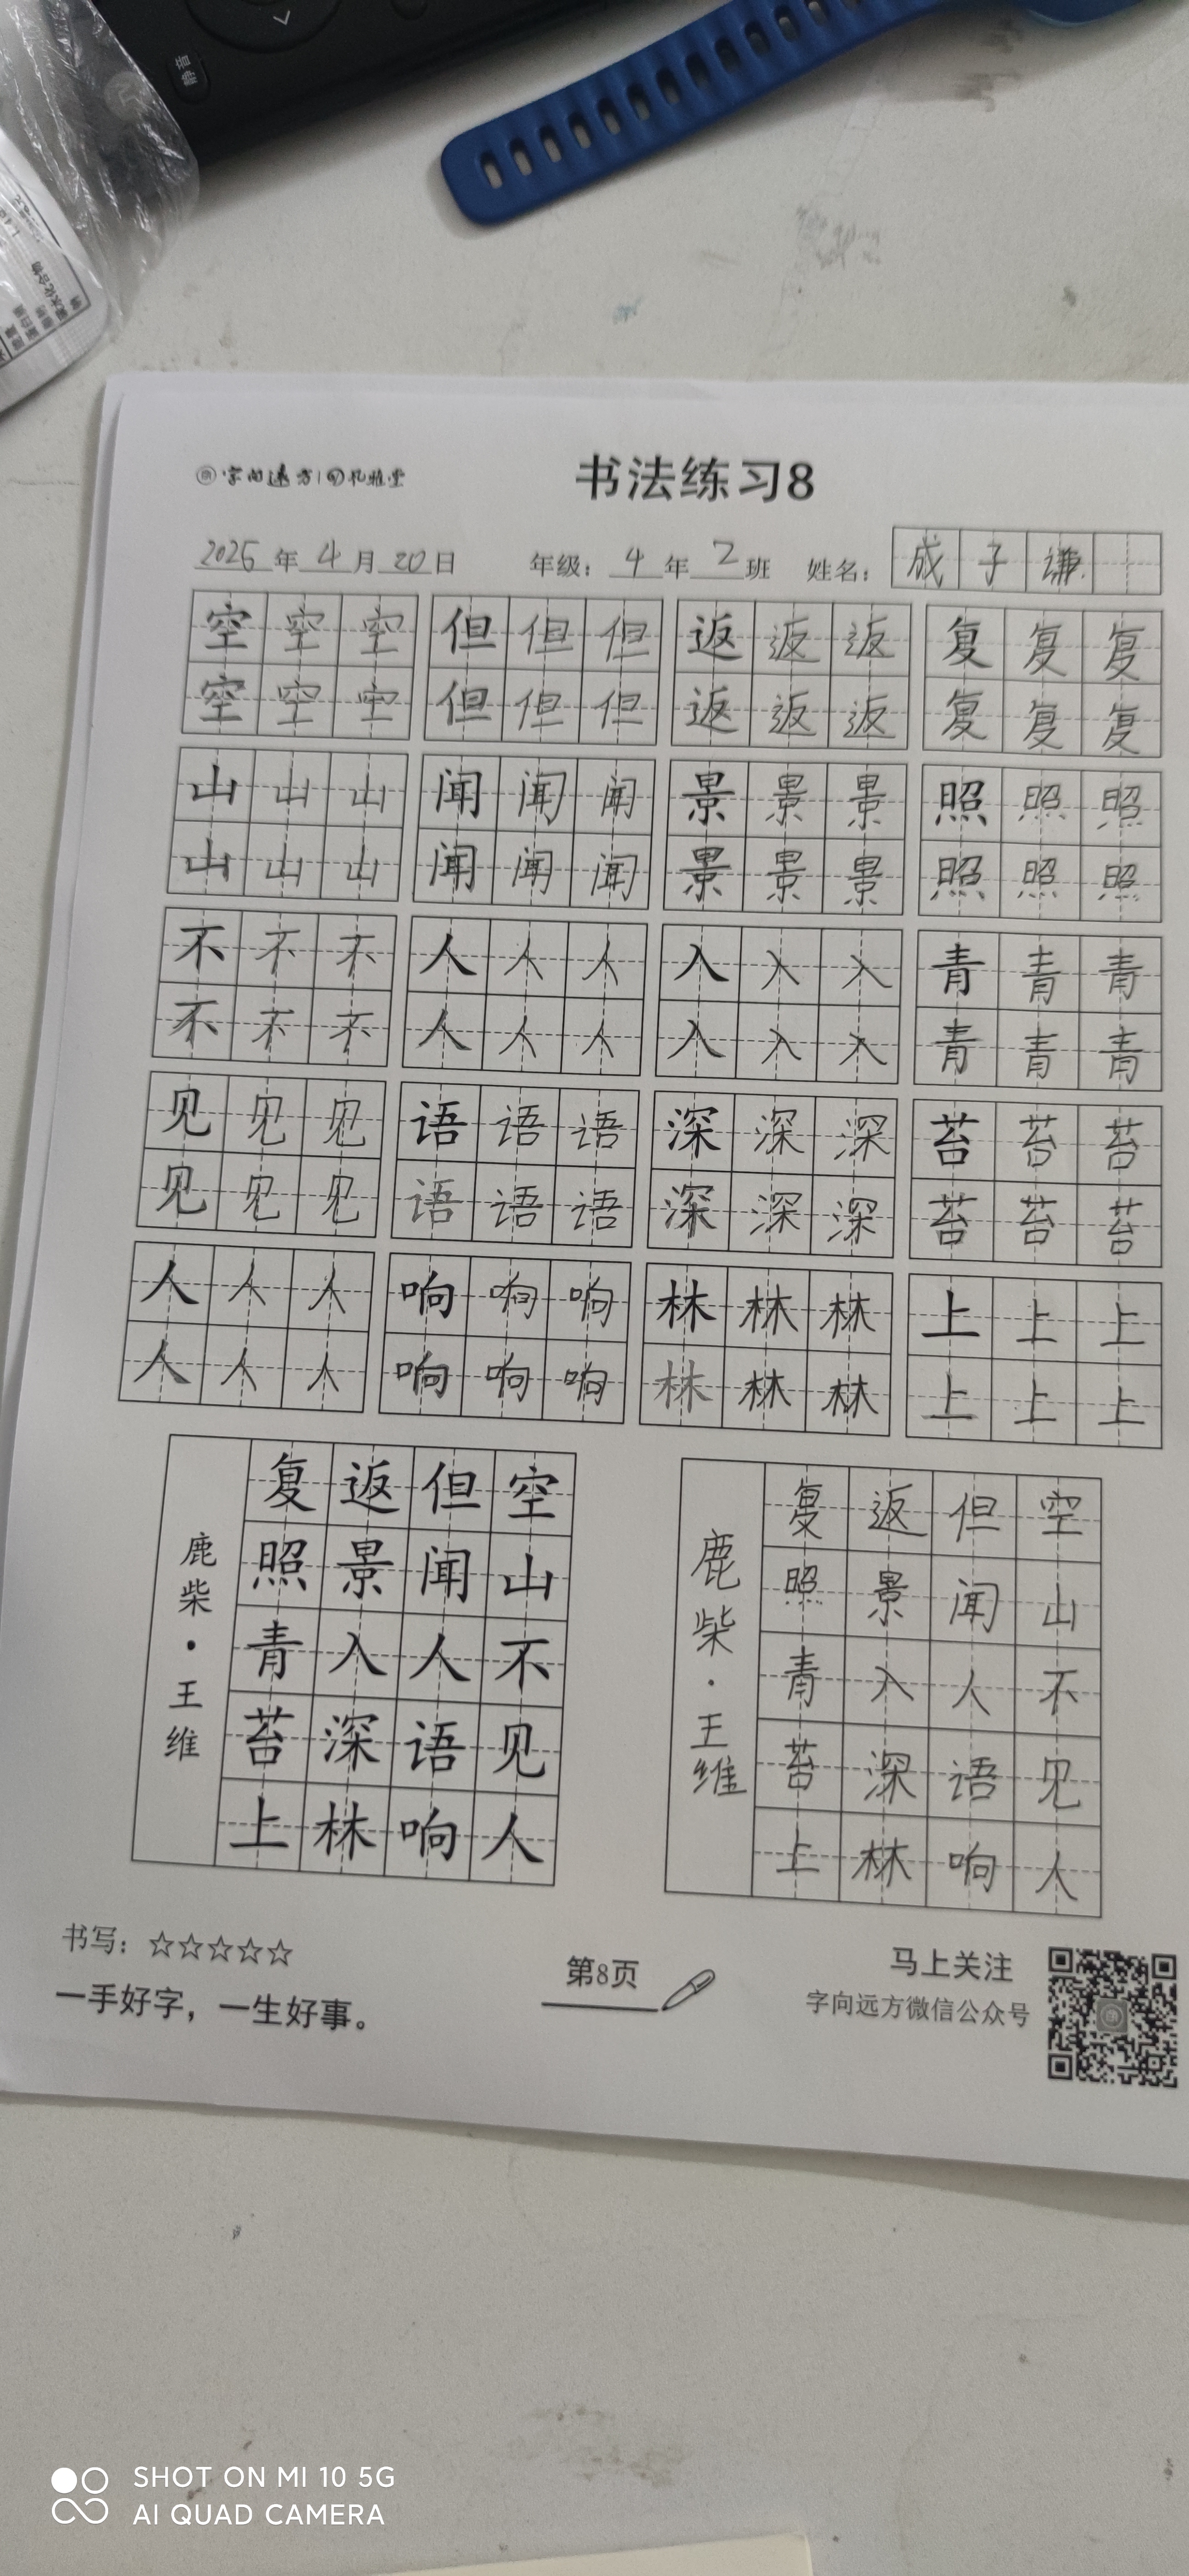 静音
字向远方|孔雅堂
书法练习8
2025年4月20日 年级：4年2班 姓名：成子谦
空空空 但但但 返返返 复复复
空空空 但但但 返返返 复复复
山山山 闻闻闻 景景景 照照照
山山山 闻闻闻 景景景 照照照
不不不 人人人 入入入 青青青
不不不 人人人 入入入 青青青
见见见 语语语 深深深 苔苔苔
见见见 语语语 深深深 苔苔苔
人人人 响响响 林林林 上上上
人人人 响响响 林林林 上上上
空山不见人
但闻人语响
返景入深林
复照青苔上
鹿柴·王维
空山不见人
但闻人语响
返景入深林
复照青苔上
鹿柴·王维
书写：☆☆☆☆☆
一手好字，一生好事。
第8页
马上关注
字向远方微信公众号
SHOT ON MI 10 5G
AI QUAD CAMERA